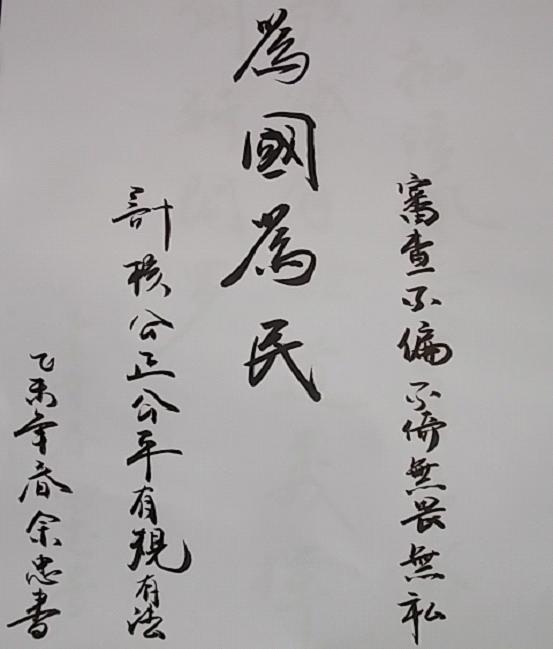 審查不偏不倚無畏無私
為國為民
計核公正公平有規有法
乙未年春余忠書